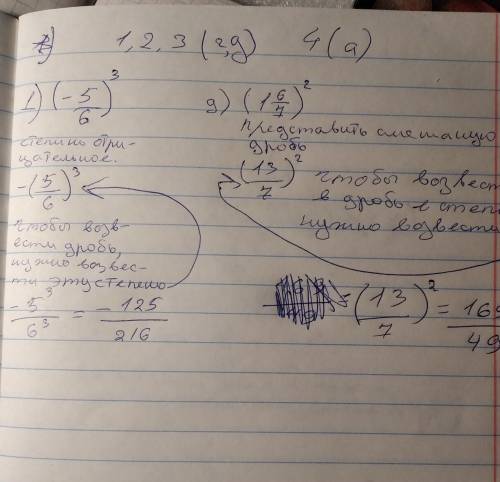 1, 2, 3 (г, д) 4 (а)
1) (-5/6)³
степинь отри-
цательное.
-(5/6)³
чтобы возв-
ести дробь,
нужно возвес-
ти эту степень
-5³/6³ = -125/216
д) (1 6/7)²
представить смешаную
дробь
(13/7)²
чтобы возвест
в дробь в степе
нужно возвести
= (13/7)² = 169/49